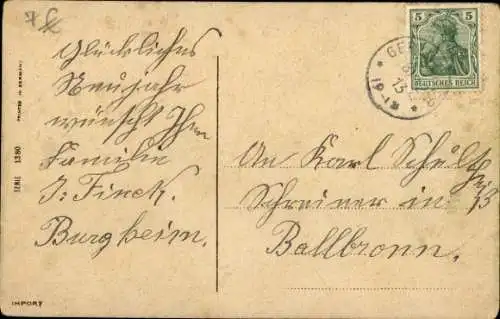 Glückliches
Neujahr
wünscht Ihnen
Familie
J: Finck.
Burgheim.
PRINTED IN GERMANY
SERIE 1380
IMPORT
5 5
DEUTSCHES REICH
13
An Karl Schulz
Schreiner in
Ballbronn.